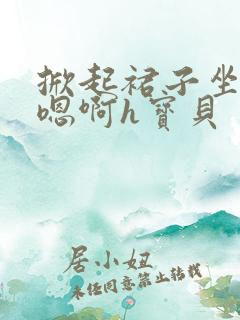 掀起裙子坐
嗯啊h寳貝
居小妞
未经同意禁止转载